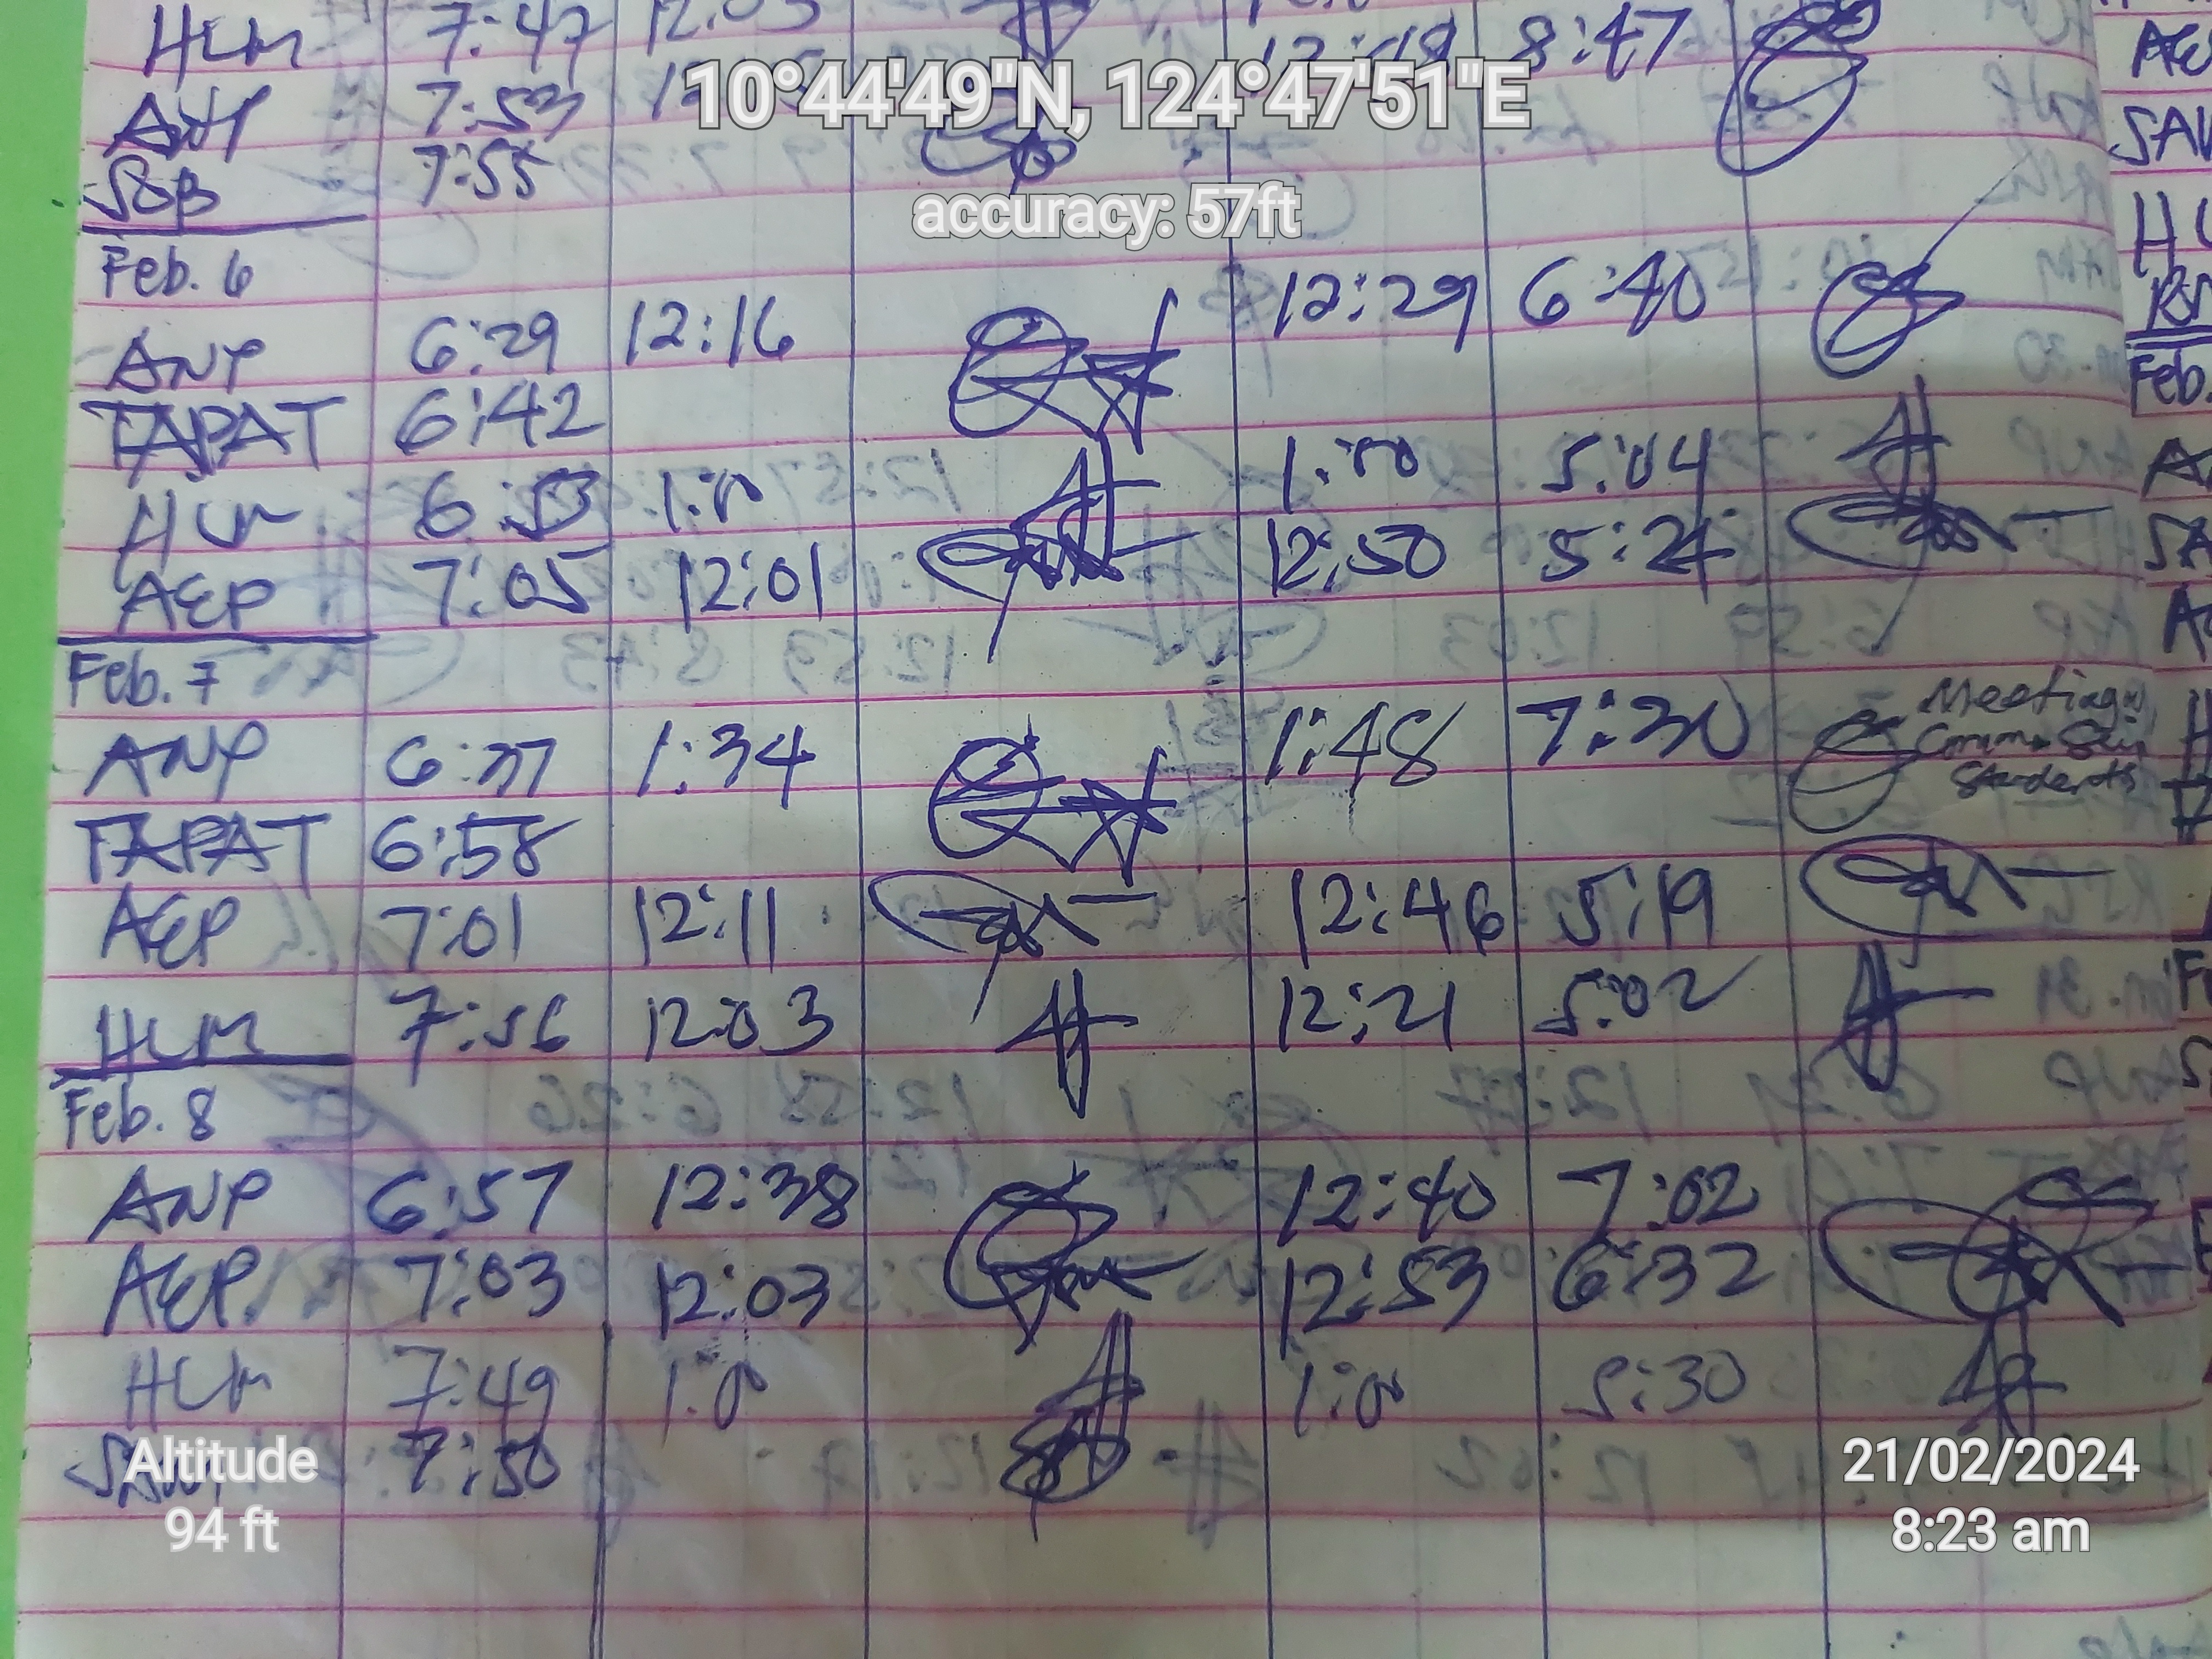 HLM 7:47 12:03
12:18 8:47
ANP 7:53
10°44'49"N, 124°47'51"E
SBB 7:55
accuracy: 57ft
Feb. 6
ANP 6:29 12:16 12:29 6:40
TAPAT 6:42
HLM 6:53 1:00 1:00 5:04
AEP 7:05 12:01 12:50 5:24
Feb. 7
ANP 6:37 1:34 1:48 7:30 Meeting
Students
TAPAT 6:58
AEP 7:01 12:11 12:46 5:19
HLM 7:56 12:03 12:21 5:02
Feb. 8
ANP 6:57 12:38 12:40 7:02
AEP 7:03 12:03 12:53 6:32
HLM 7:49 1:00 1:00 5:30
7:50
Altitude
94 ft
21/02/2024
8:23 am